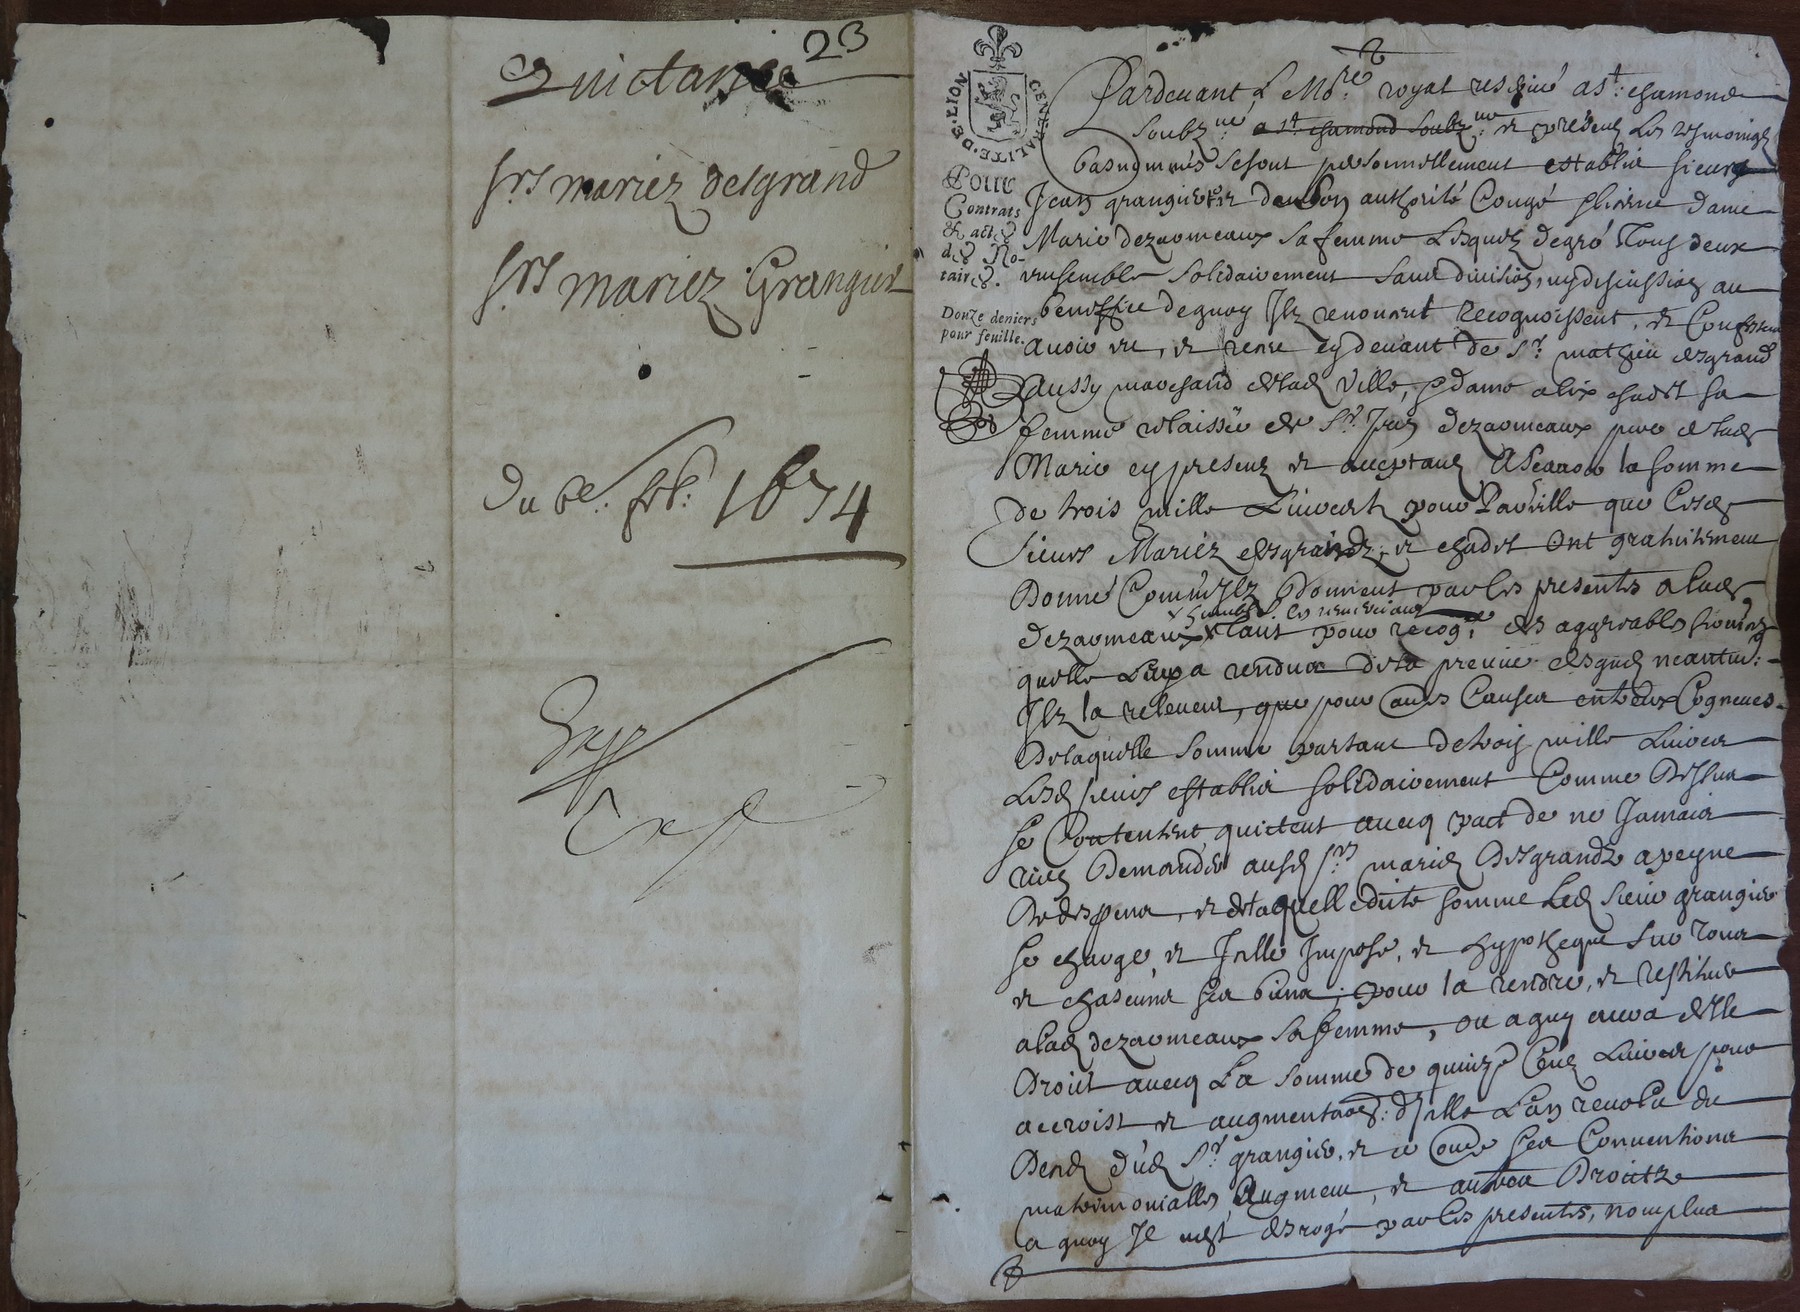 23
Quictance
srs mariez desgrand
srs mariez Grangier
du 6e. feb: 1674
Exp
GENERALITE·DE·LION
Pour
Contrats
& actes
des No-
taires.
Douze deniers
pour feuille.
Pardevant Le No.re royal reservé a st: chamond
soubz.né a st chamond soubz.né et présens Les tesmoingz
basnommés se sont personnellement establis sieurs
Jean grangier et de son authorité Congé licence dame
Marie dezarmeaux sa femme Lesquelz de gré Tous deux
ensemble solidairement sans division, ny discussion au
beneffice de quoy Ilz renoncent Recognoissent, et Confessent
avoir eu, et receu cy devant de sr. mathieu desgrand
aussy marchand de lad ville, et dame alix chadit sa
femme relaissée de sr. Jean dezarmeaux pere de lad
Marie cy presens et acceptans A scavoir la somme
de trois mille Livres pour Pareille que Lesd
sieurs Mariéz desgrandz, et chadit ont gratuitement
Donné Comm'Ilz Donnent par les presentes a lad
dezarmeaux Tant pour recog.e des aggreables services
quelle Leur a rendus de la preuve desquelz neantm:
Ilz la relevent, que pour autres Causes entr'eux Cogneues
De laquelle somme partant de trois mille Livres
Lesd sieurs establis solidairement Comme Dessus
se Contentent, quictent avecq pact de ne Jamais
rien Demander ausd srs mariez Desgrandz a peyne
De despens, et de laquelle dite somme Led sieur grangier
se charge, et Icelle Impose, et hypotheque sur Tous
et chascuns ses biens, pour la rendre, et restituer
a lad dezarmeaux sa femme, ou a quy aura d'elle
Droict avecq La somme de quinze Cens Livres pour
accroist et augmentaon: d'Icelle L'an revolu du
Deces dud sr. grangier, et ce outre ses Conventions
matrimonialles, Augment, et autres Droictz
a quoy Il n'est desrogé par les presentes, non plus